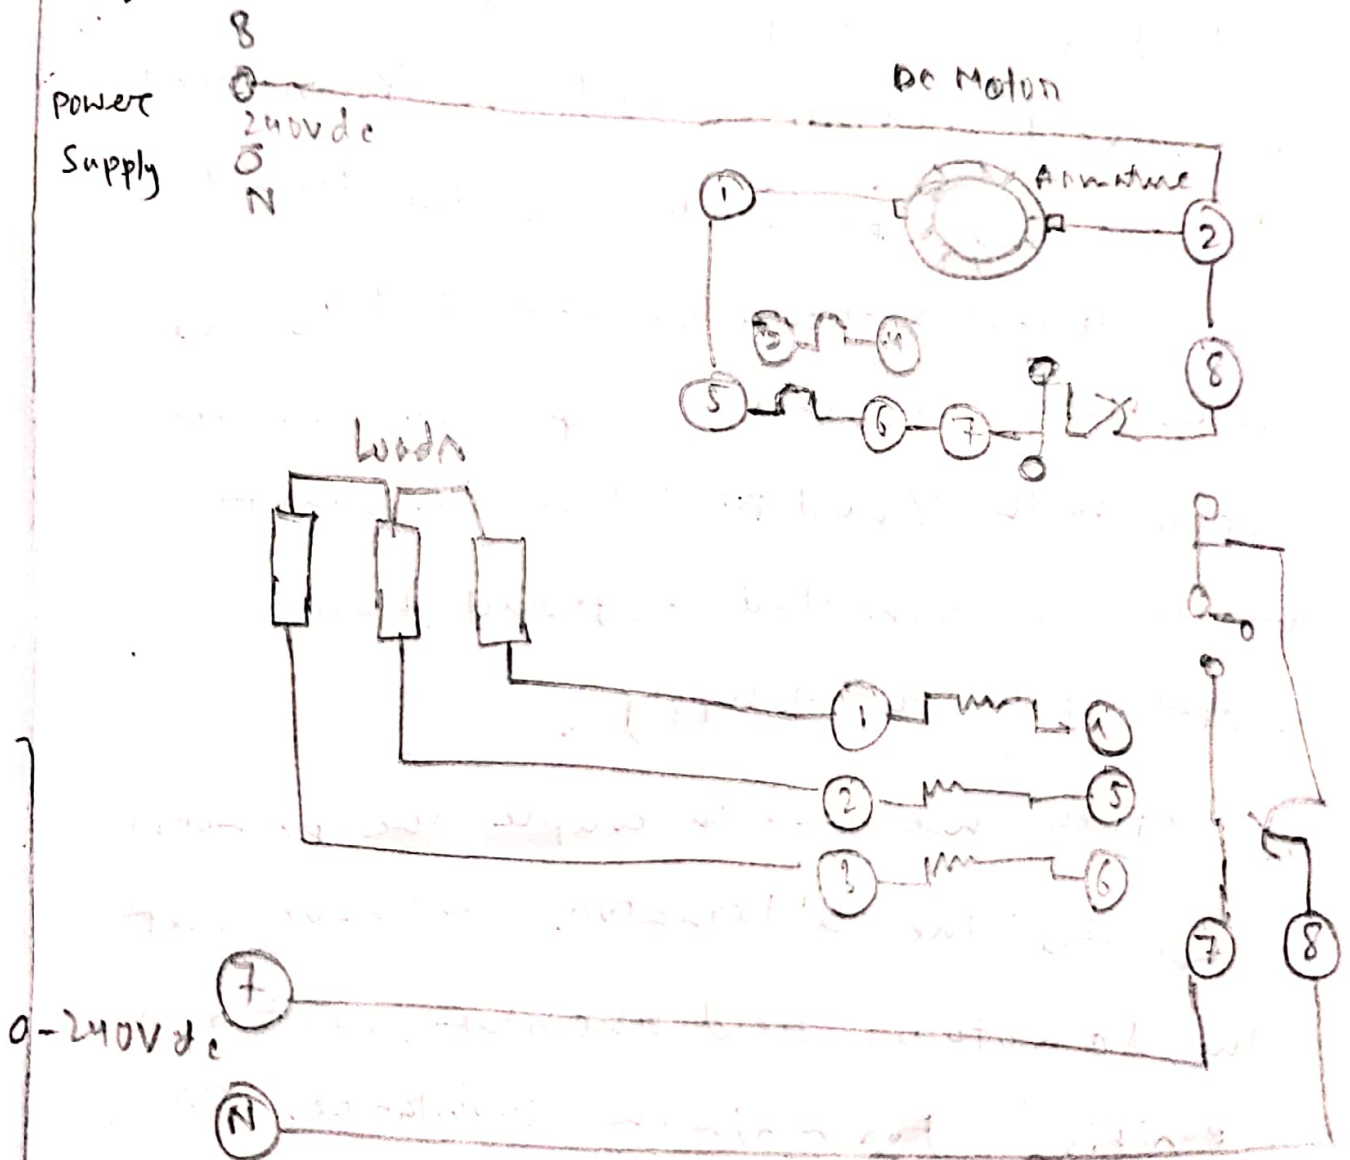 8
Power
240Vdc
Supply
N
DC Motor
Armature
1
2
3
4
8
5
6
7
Loads
1
4
2
5
3
6
7
8
7
0-240Vdc
N